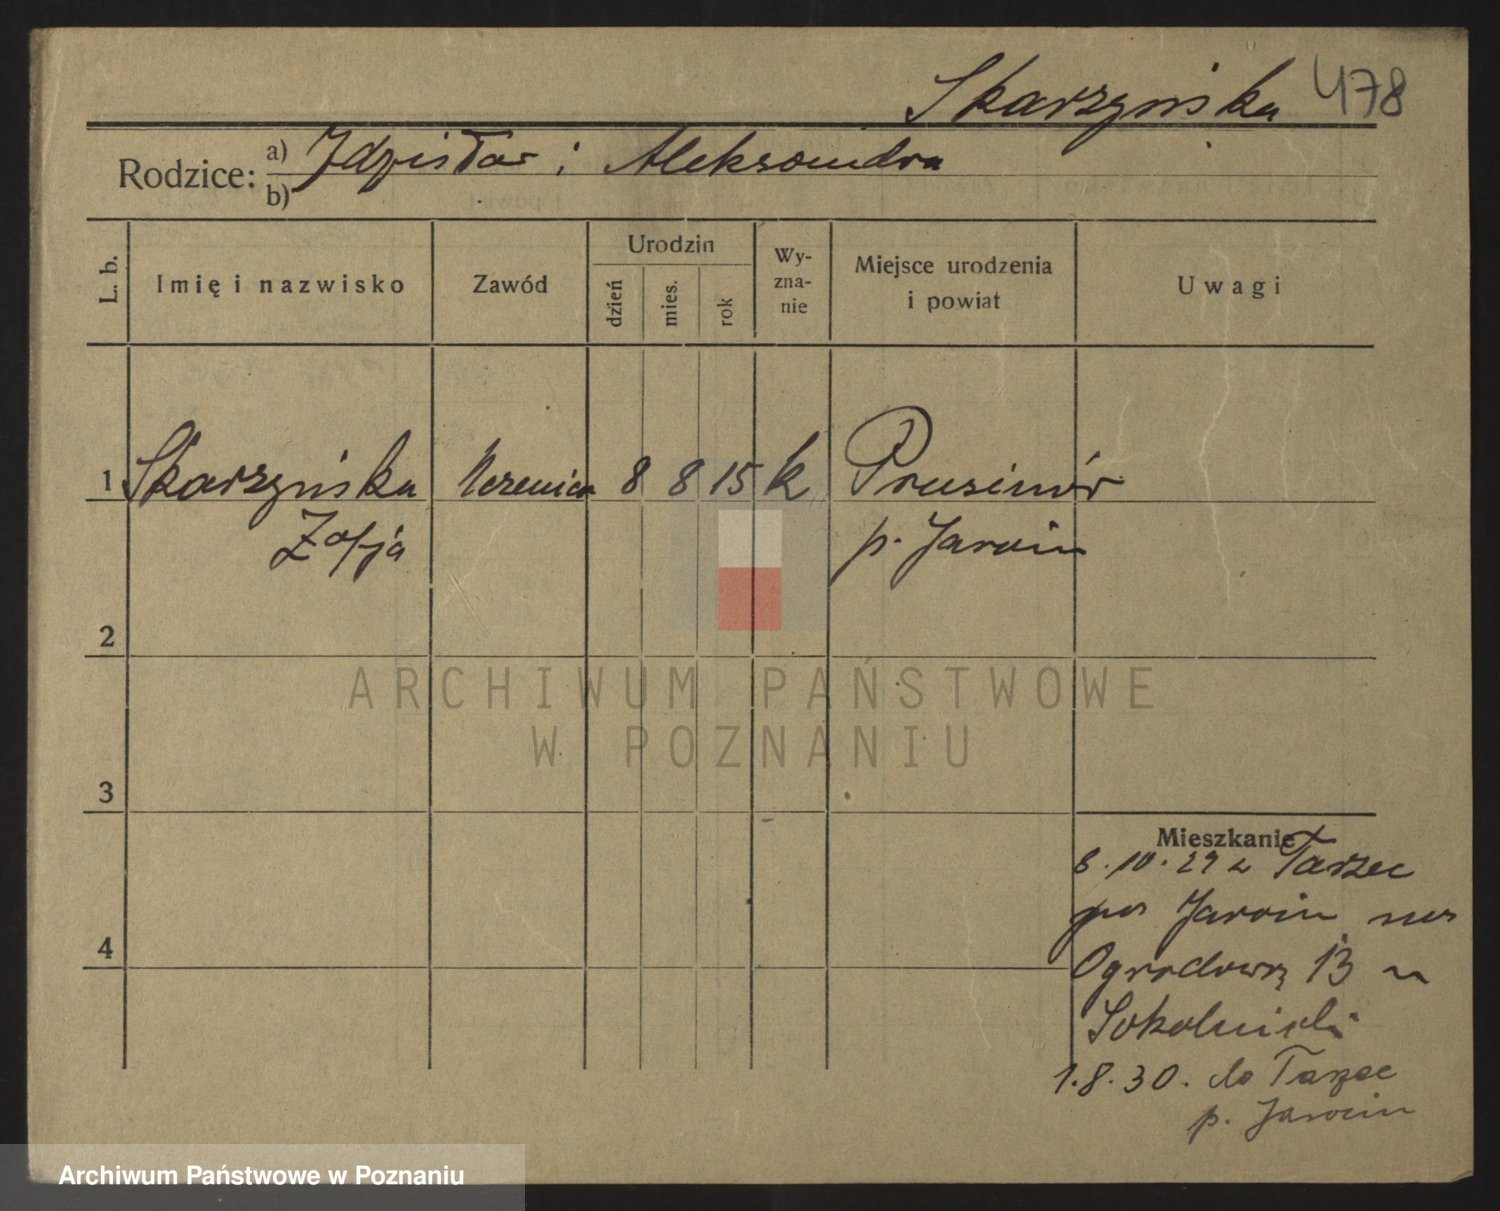 Skarzyńska 478
Rodzice: a) Zdzisław i Aleksandra
b)
L. b.
Imię i nazwisko
Zawód
Urodzin
dzień
mies.
rok
Wy-
zna-
nie
Miejsce urodzenia
i powiat
Uwagi
1 Skarzyńska Uczenica 8 8 15 k Prusinów
Zofja p. Jarocin
2
3
4
Mieszkanie
8.10.29 z Tarzec
pow Jarocin na
Ogrodową 13 u
Sokolnicki
1.8.30. do Tarzec
p. Jarocin
ARCHIWUM PAŃSTWOWE
W POZNANIU
Archiwum Państwowe w Poznaniu